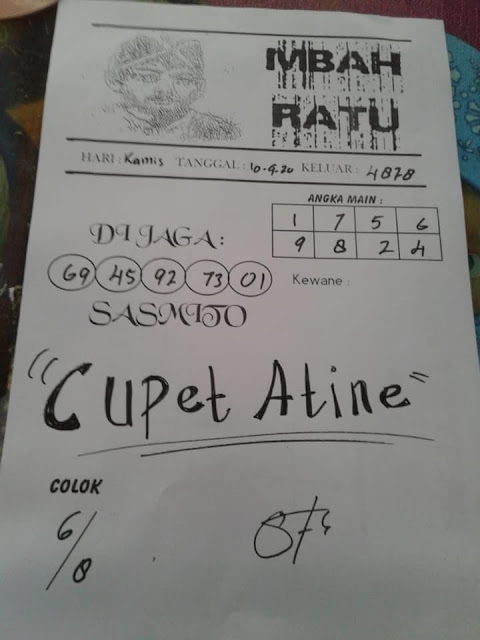 MBAH
RATU
HARI : Kamis TANGGAL : 10-9-20 KELUAR : 4878
ANGKA MAIN :
1 7 5 6
9 8 2 4
DI JAGA :
69 45 92 73 01
Kewane :
SASMITO
"Cupet Atine"
COLOK
6/8